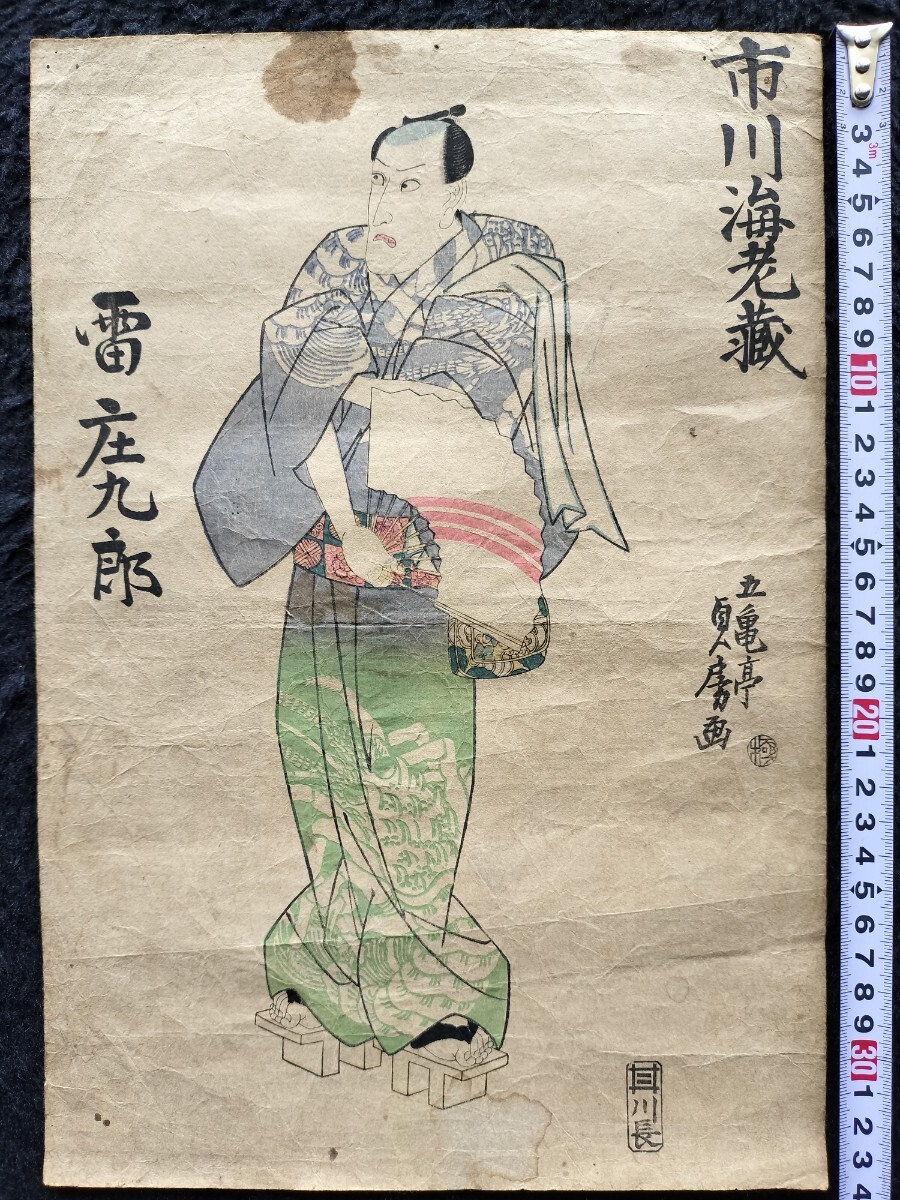 市川海老蔵
雷庄九郎
五亀亭
貞房画
極
川長
3m
3 4 5 6 7 8 9 10 1 2 3 4 5 6 7 8 9 20 1 2 3 4 5 6 7 8 9 30 1 2 3 4